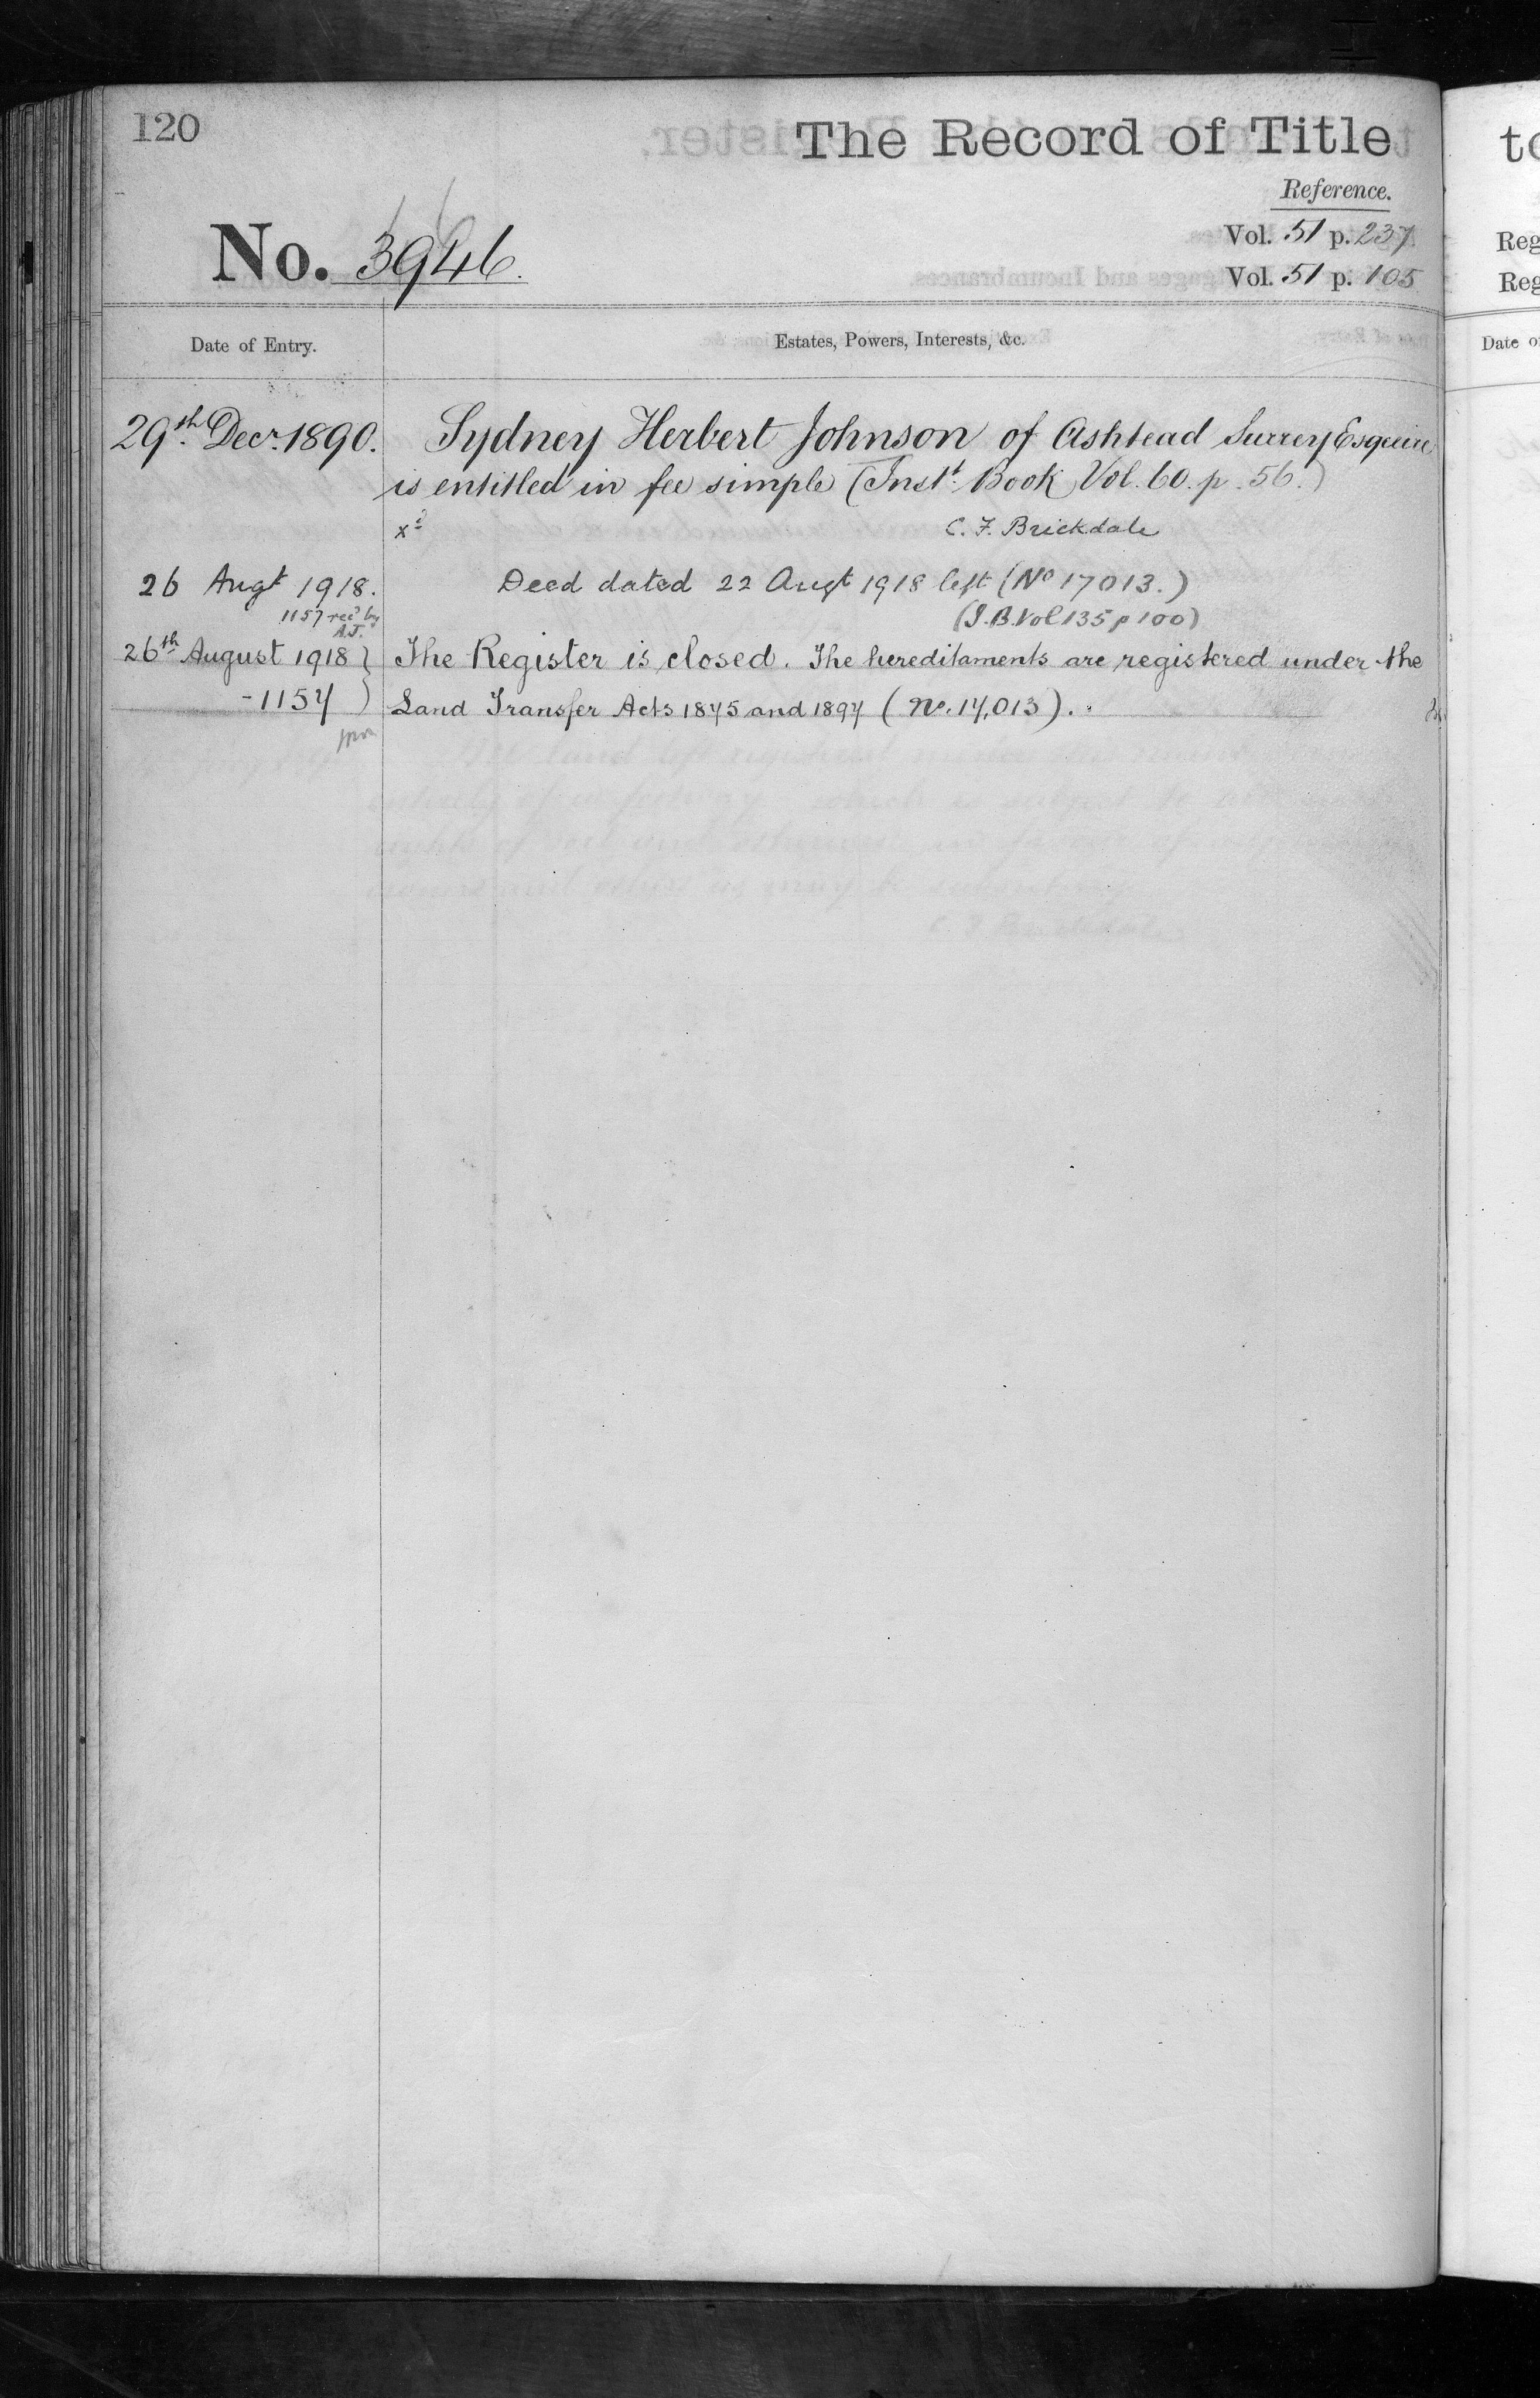 120
The Record of Title
Reference.
No. 3946.
Vol. 51 p. 237.
Vol. 51 p. 105
Date of Entry.
Estates, Powers, Interests, &c.
29th Decr. 1890.
Sydney Herbert Johnson of Ashtead Surrey Esquire
is entitled in fee simple (Inst. Book Vol. 60. p. 56.)
xd
C. F. Brickdale
26 Augt 1918.
Deed dated 22 Augt 1918 left (No 17013.)
1157 recd by
A.J.
(I.B. Vol 135 p 100)
26th August 1918
The Register is closed. The hereditaments are registered under the
-1157
Land Transfer Acts 1875 and 1897 (No. 17,013).
to
Reg
Reg
Date o